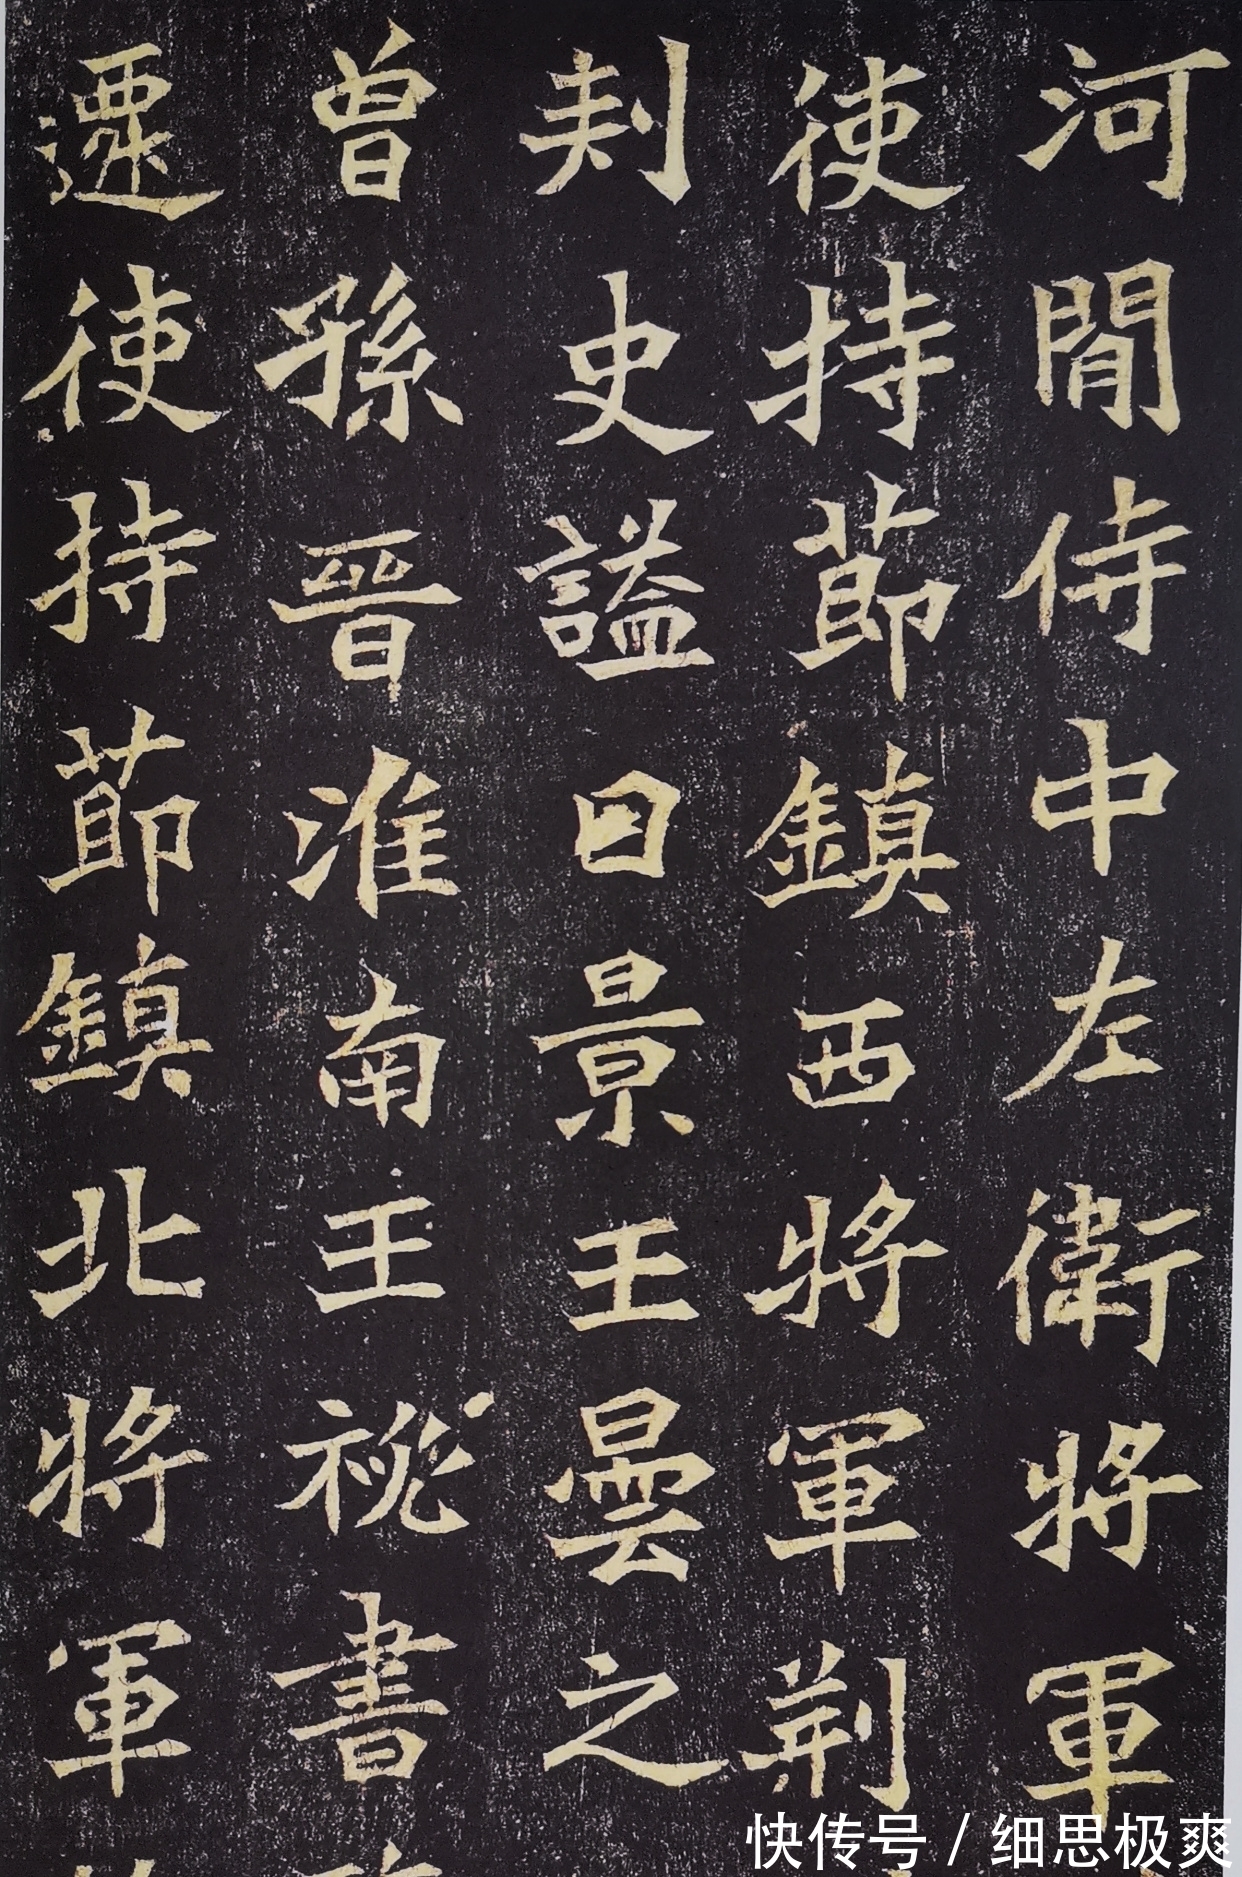 河間侍中左衛將軍
使持節鎮西將軍荊
刾史謚曰景王曇之
曾孫晉淮南王祕書
遷使持節鎮北將軍
快传号/细思极爽